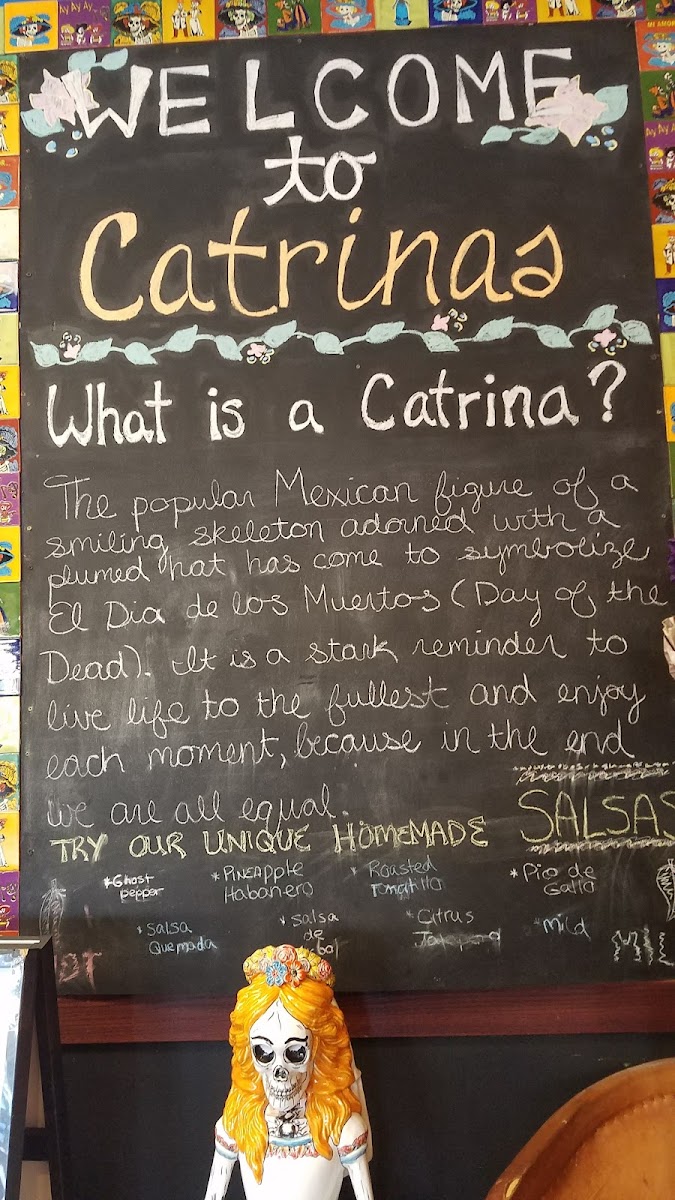 WELCOME
to
Catrinas
What is a Catrina?
The popular Mexican figure of a
smiling skeleton adorned with a
plumed hat has come to symbolize
El Dia de los Muertos (Day of the
Dead). It is a stark reminder to
live life to the fullest and enjoy
each moment, because in the end
we are all equal.
TRY OUR UNIQUE HOMEMADE SALSAS
*Ghost pepper
*Pineapple Habanero
*Roasted Tomatillo
*Pio de Gallo
*Salsa Quemada
*Salsa de
*Citrus
*Mild